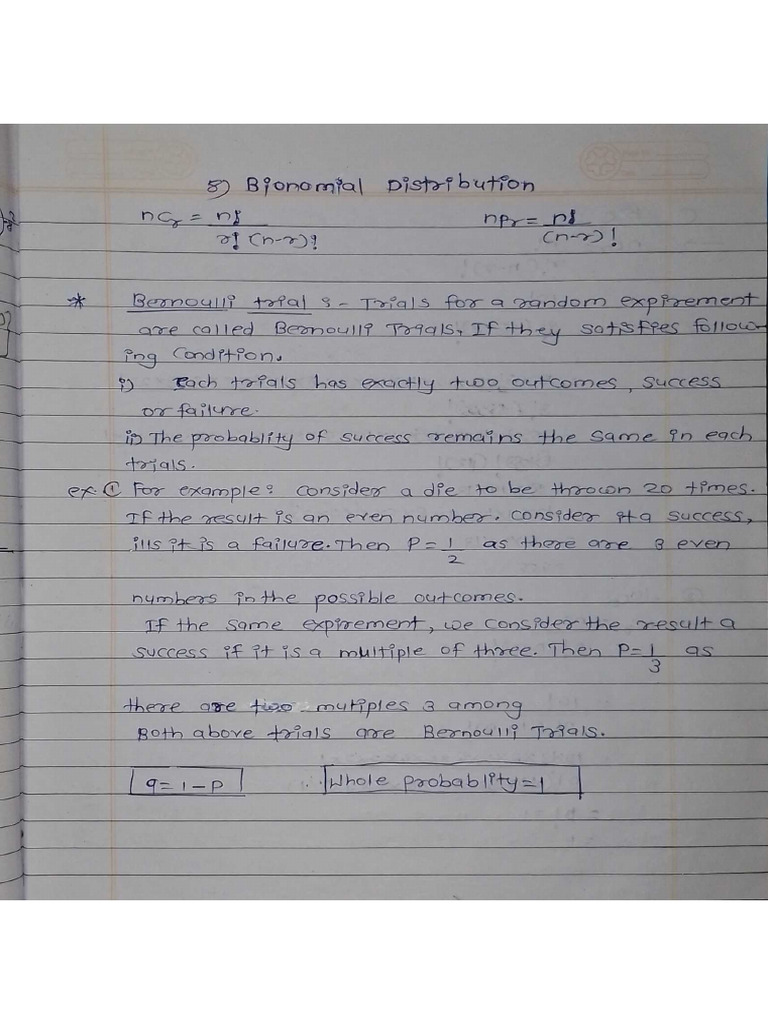 8) Bionomial Distribution
nCr = n! / r! (n-r)!    nPr = n! / (n-r)!
* Bernoulli trial :- Trials for a random expirement
are called Bernoulli Trials, If they satisfies follow-
ing Condition.
i) Each trials has exactly two outcomes, success
or failure.
ii) The probablity of success remains the same in each
trials.
ex. ① For example: consider a die to be thrown 20 times.
If the result is an even number. consider it a success,
ills it is a failure. Then P = 1/2 as there are 3 even
numbers in the possible outcomes.
If the same expirement, we consider the result a
success if it is a multiple of three. Then P = 1/3 as
there are two mutiples 3 among
Both above trials are Bernoulli Trials.
q = 1 - P    Whole probablity = 1